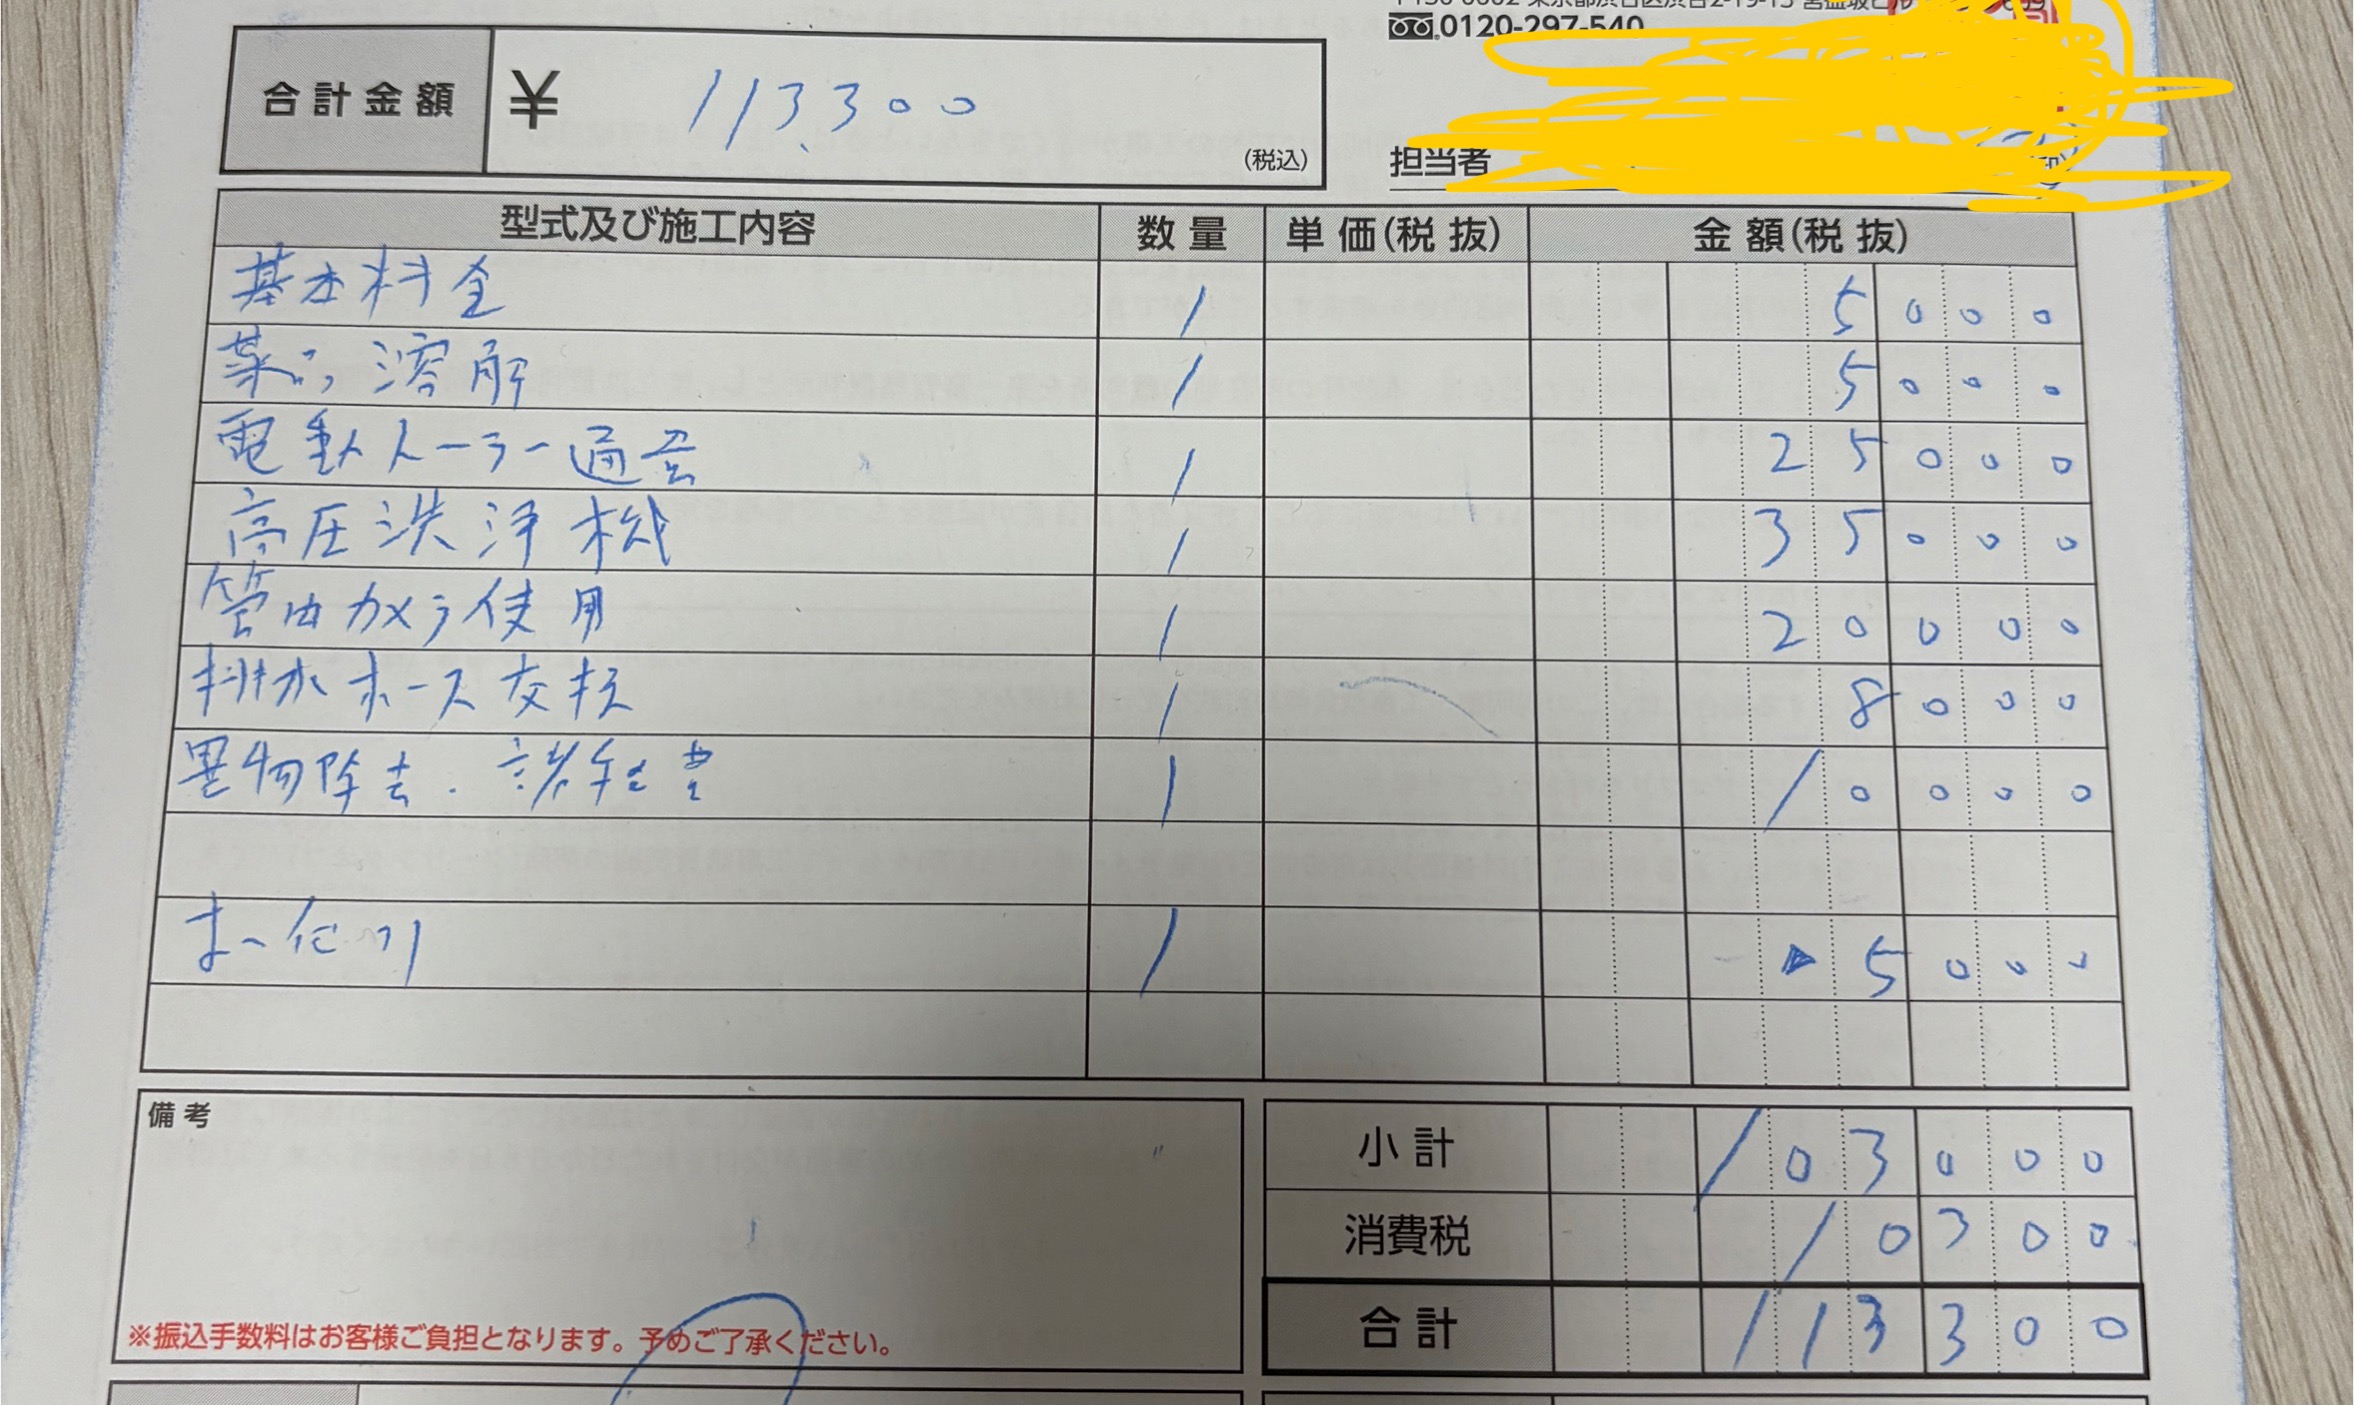 0120-297-540
合計金額 ¥ 113,300 (税込)
担当者
型式及び施工内容 数量 単価(税抜) 金額(税抜)
基本料金 1 5000
薬品溶解 1 5000
電動トーラー通管 1 25000
高圧洗浄機 1 35000
管内カメラ使用 1 20000
排水ホース交換 1 8000
異物除去・諸経費 1 10000
1 ▲5000
備考
小計 103000
消費税 10300
合計 113300
※振込手数料はお客様ご負担となります。予めご了承ください。